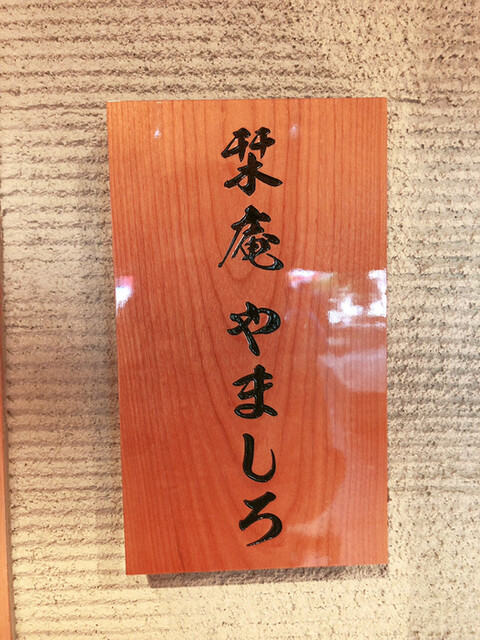 栞庵 やましろ